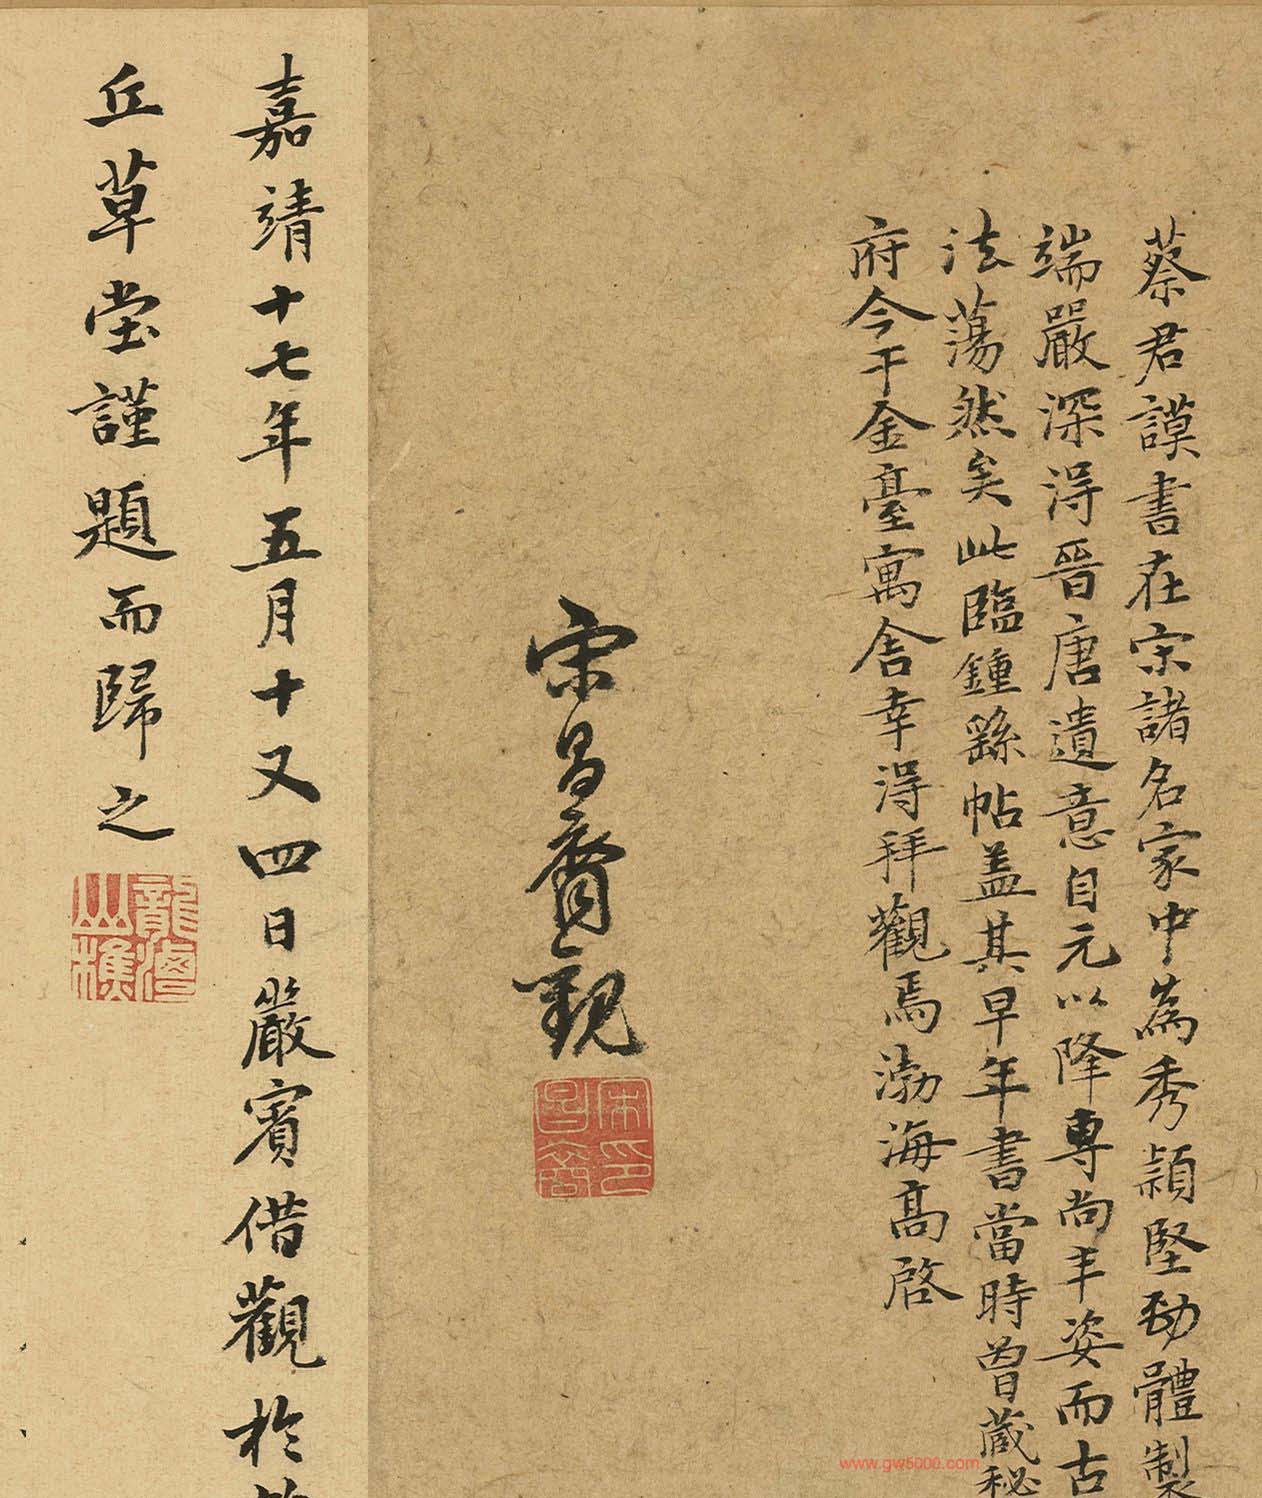 蔡君謨書在宗諸名家中為秀頴堅勁體製
端嚴深淂晉唐遺意自元以降專尚丰姿而古
法蕩然矣此臨鍾繇帖盖其早年書當時曾藏秘
府今于金臺寓舍幸淂拜觀焉渤海高啓
宋昌裔觀
宋昌裔印
嘉靖十七年五月十又四日嚴賓借觀於
丘草堂謹題而歸之
龍灣山樵
www.gw5000.com